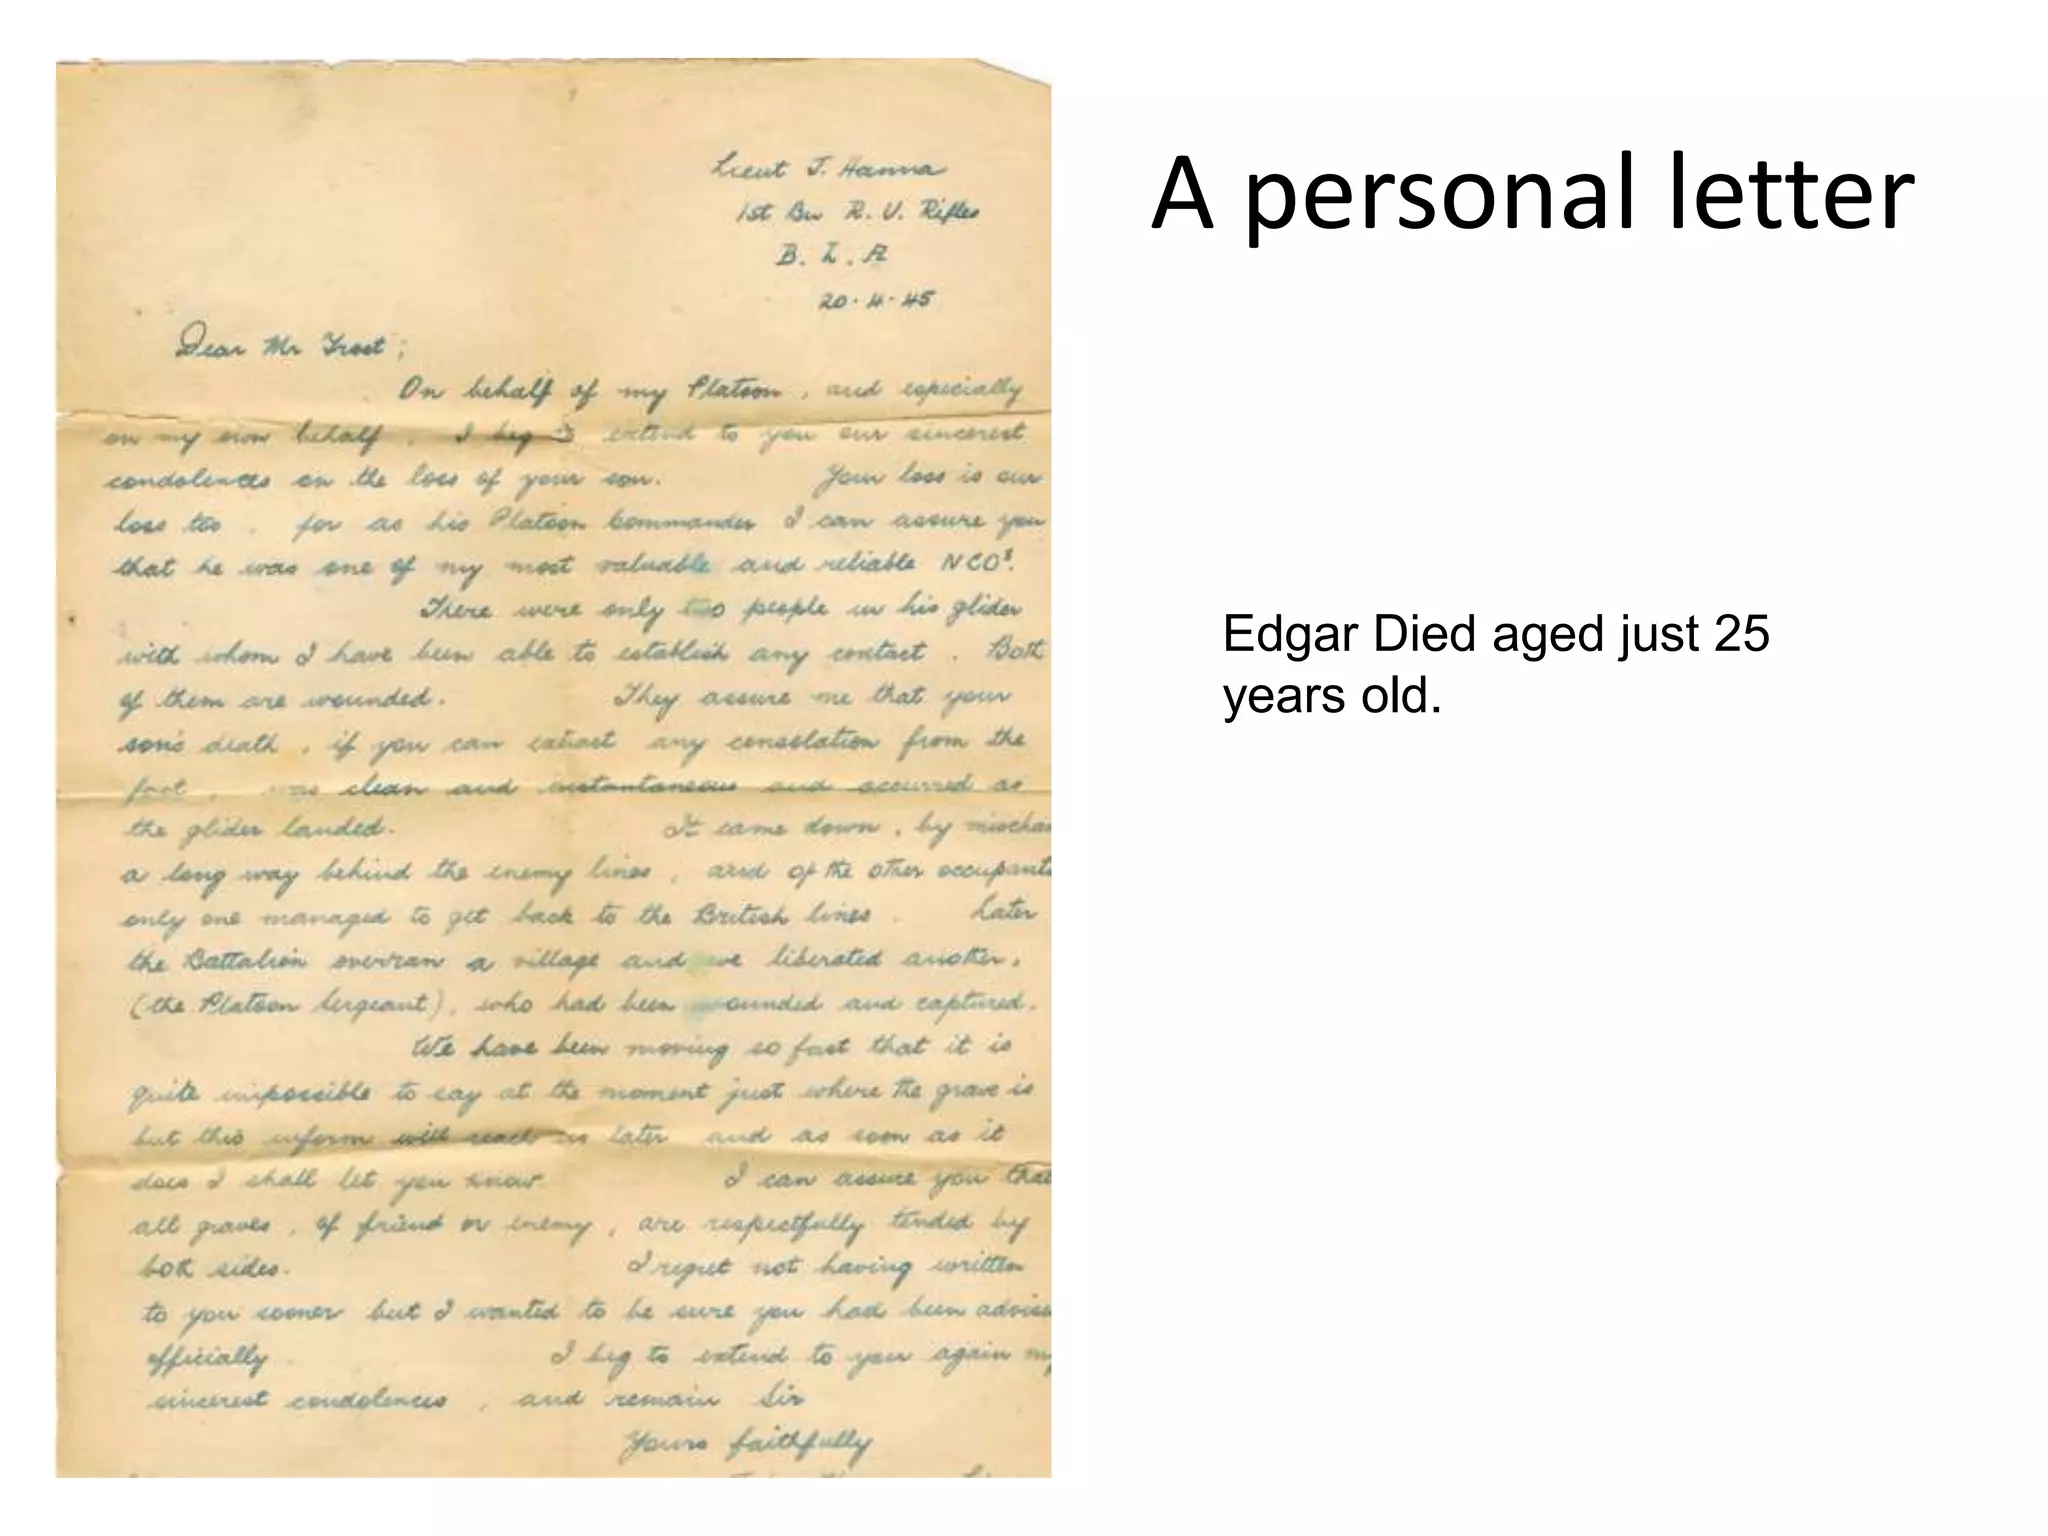 Lieut J. Hanna
1st Bn R. U. Rifles
B. L. A
20.4.45
Dear Mr Frost;
On behalf of my Platoon, and especially
on my own behalf, I beg to extend to you our sincerest
condolences on the loss of your son. Your loss is our
loss too, for as his Platoon Commander I can assure you
that he was one of my most valuable and reliable NCOs.
There were only two people in his glider
with whom I have been able to establish any contact. Both
of them are wounded. They assure me that your
son's death, if you can extract any consolation from the
fact, was clean and instantaneous and occurred as
the glider landed. It came down, by mischan
a long way behind the enemy lines, and of the other occupants
only one managed to get back to the British lines. Later
the Battalion overran a village and we liberated another,
(the Platoon Sergeant), who had been wounded and captured.
We have been moving so fast that it is
quite impossible to say at the moment just where the grave is
but this inform will reach us later and as soon as it
does I shall let you know. I can assure you that
all graves, of friend or enemy, are respectfully tended by
both sides. I regret not having written
to you sooner but I wanted to be sure you had been advise
officially. I beg to extend to you again my
sincerest condolences, and remain Sir
Yours faithfully
A personal letter
Edgar Died aged just 25
years old.